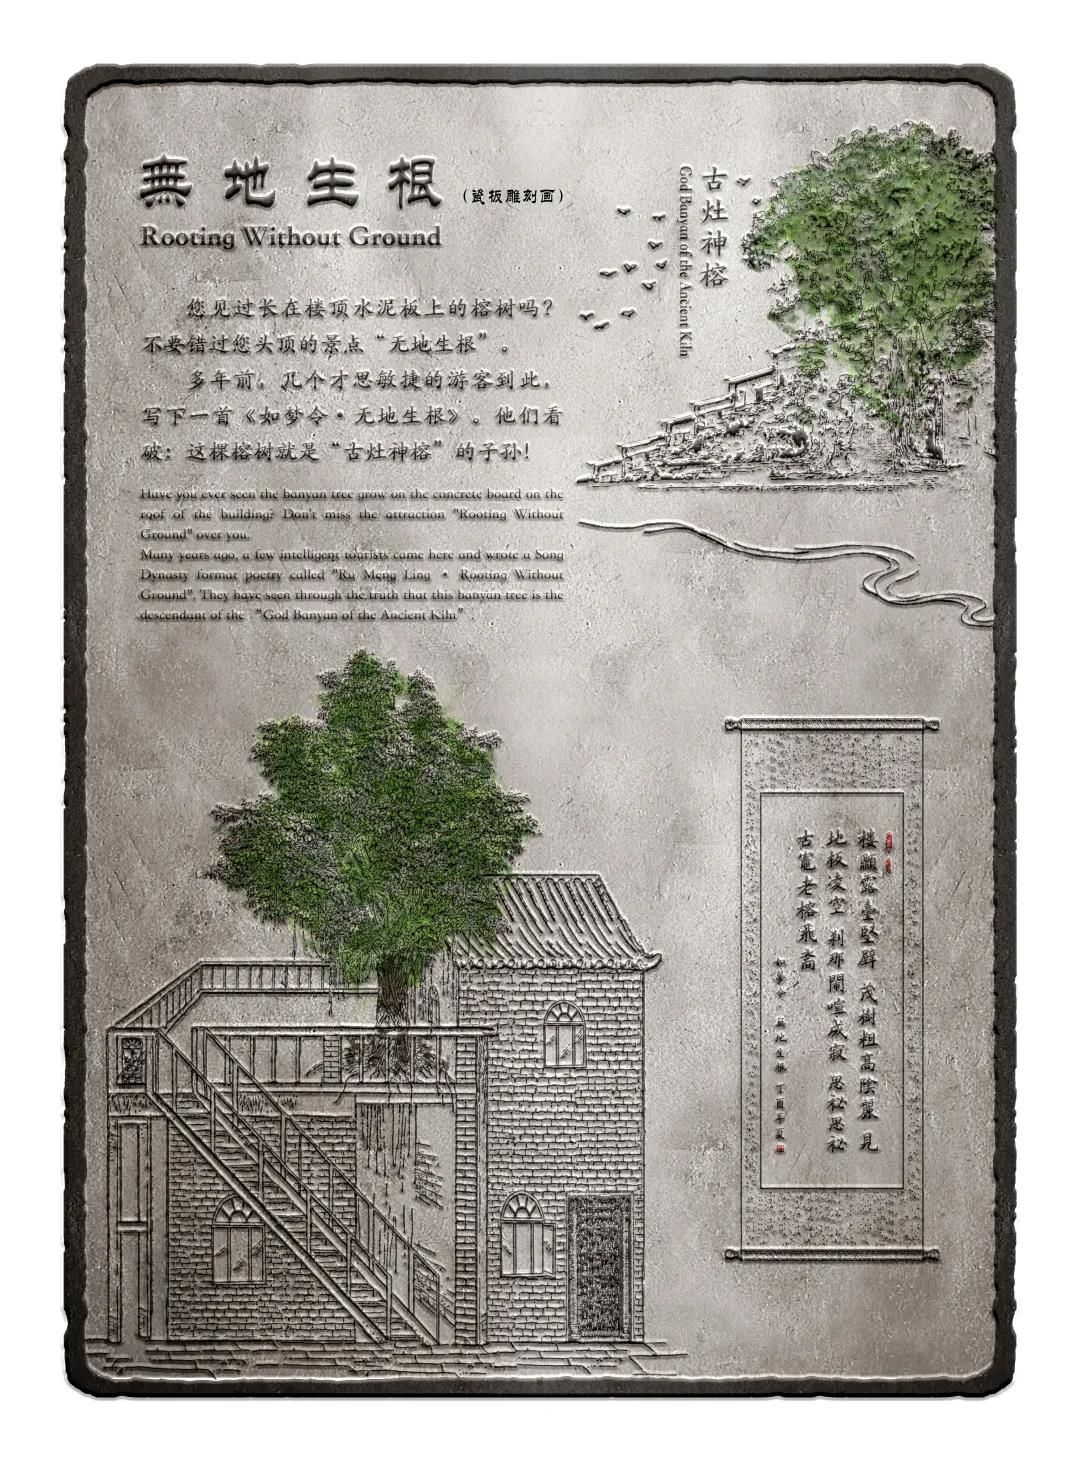 無地生根（瓷板雕刻画）
Rooting Without Ground
您见过长在楼顶水泥板上的榕树吗？
不要错过您头顶的景点“无地生根”。
多年前，几个才思敏捷的游客到此，
写下一首《如梦令·无地生根》。他们看
破：这棵榕树就是“古灶神榕”的子孙！
Have you ever seen the banyan tree grow on the concrete board on the
roof of the building? Don't miss the attraction "Rooting Without
Ground" over you.
Many years ago, a few intelligent tourists came here and wrote a Song
Dynasty format poetry called "Ru Meng Ling · Rooting Without
Ground". They have seen through the truth that this banyan tree is the
descendant of the "God Banyan of the Ancient Kiln".
古灶神榕
God Banyan of the Ancient Kiln
楼顶露臺堅壁 茂樹粗高陰麗 見
地板凌空 刹那間喧成寂 思祕思祕
古竈老榕飛裔
如夢令 無地生根 丁酉年夏